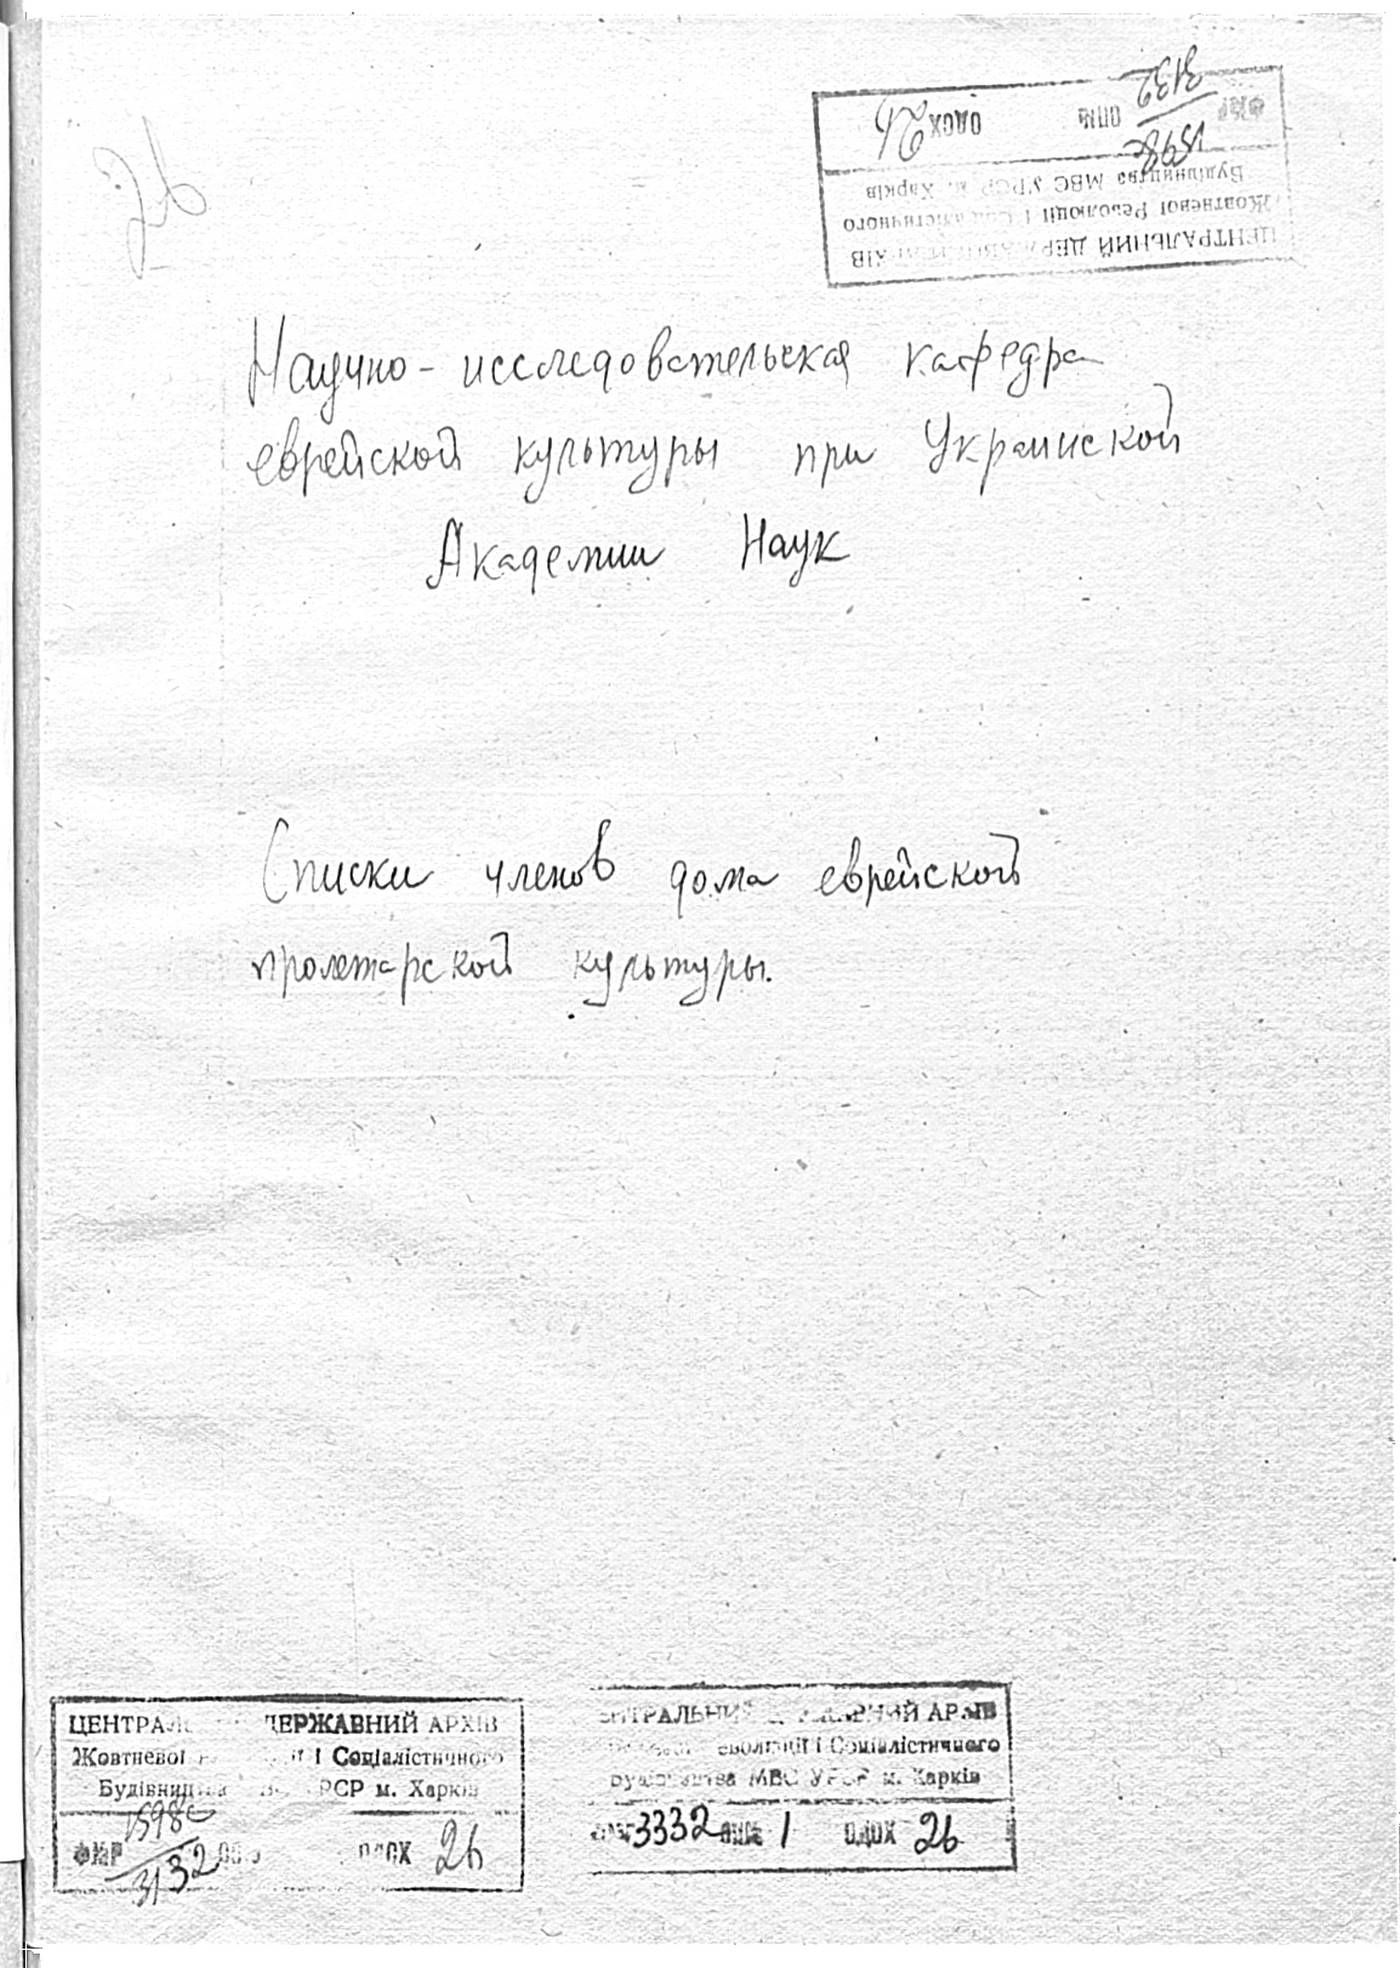 26
ЦЕНТРАЛЬНИЙ ДЕРЖАВНИЙ АРХІВ
Жовтневої Революції і Соціалістичного
Будівництва МВС УРСР м. Харків
ФМР 1598с/3132 ОПИС ОДОХ 26
Научно-исследовательская кафедра
еврейской культуры при Украинской
Академии Наук
Списки членов дома еврейской
пролетарской культуры.
ЦЕНТРАЛ ДЕРЖАВНИЙ АРХІВ
Жовтневої і Соціалістичного
Будівництва УРСР м. Харків
ФМР 1598с/3132 ОДОХ 26
ЦЕНТРАЛЬНИЙ ДЕРЖАВНИЙ АРХІВ
Революції і Соціалістичного
Будівництва МВС УРСР м. Харків
3332 1 ОДОХ 26